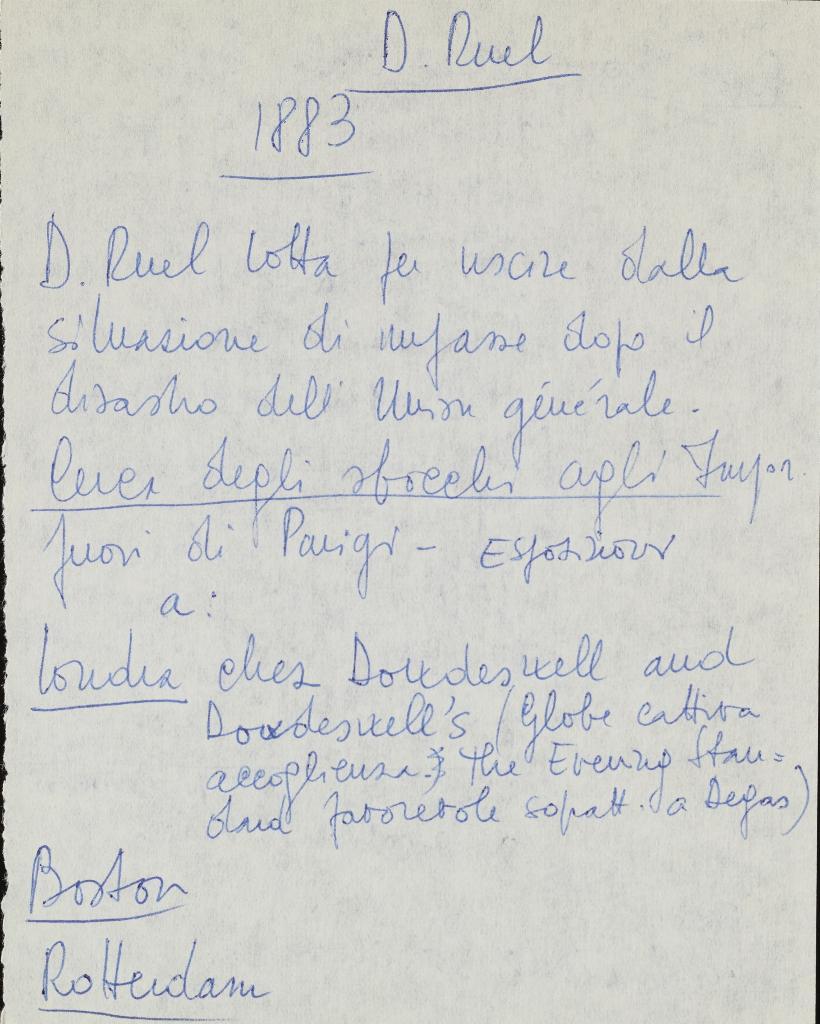 D. Ruel
1883
D. Ruel lotta per uscire dalla
situazione di impasse dopo il
disastro dell' Union générale.
Cerca degli sbocchi agli Impr.
fuori di Parigi - Esposizioni
a:
Londra chez Dowdeswell and
Dowdeswell's (Globe cattiva
accoglienza. The Evening Stan=
dard favorevole sopratt. a Degas)
Boston
Rotterdam